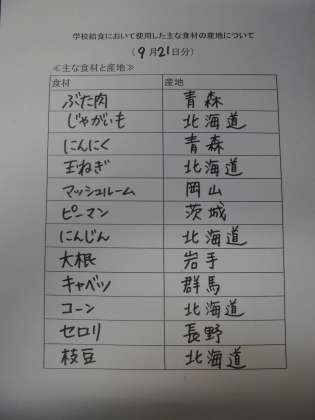 学校給食において使用した主な食材の産地について
(9月21日分)
≪主な食材と産地≫
食材 産地
ぶた肉 青森
じゃがいも 北海道
にんにく 青森
玉ねぎ 北海道
マッシュルーム 岡山
ピーマン 茨城
にんじん 北海道
大根 岩手
キャベツ 群馬
コーン 北海道
セロリ 長野
枝豆 北海道